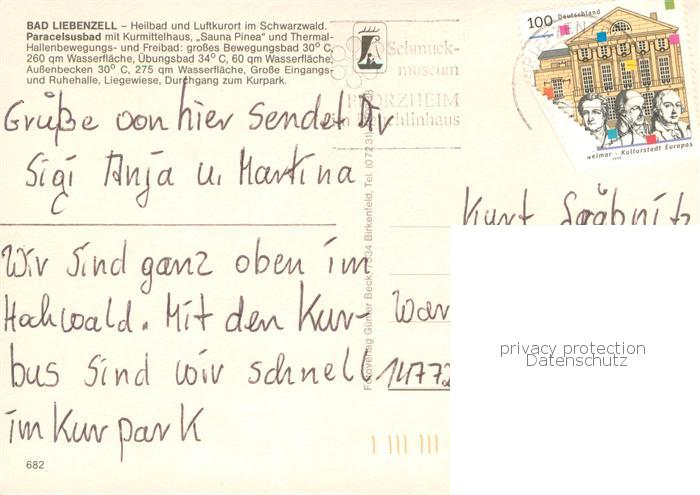 BAD LIEBENZELL – Heilbad und Luftkurort im Schwarzwald.
Paracelsusbad mit Kurmittelhaus, „Sauna Pinea" und Thermal-
Hallenbewegungs- und Freibad: großes Bewegungsbad 30° C,
260 qm Wasserfläche, Übungsbad 34° C, 60 qm Wasserfläche,
Außenbecken 30° C, 275 qm Wasserfläche, Große Eingangs-
und Ruhehalle, Liegewiese, Durchgang zum Kurpark.
Schmuck-
museum
PFORZHEIM
im Reuchlinhaus
100 Deutschland
Weimar – Kulturstadt Europas
Grüße von hier sendet Dir
Sigi Anja u. Martina
Wir sind ganz oben im
Hochwald. Mit den Kur-
bus sind wir schnell
im Kurpark
682
Fotoverlag Günter Beck, 7534 Birkenfeld, Tel. (07231)
Kurt
War
14772
privacy protection
Datenschutz